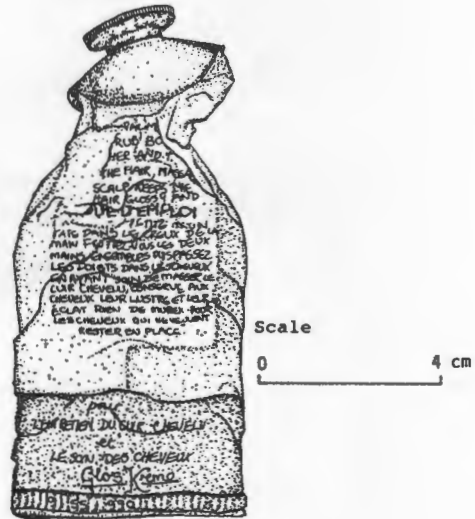 PALM
RUB BO
HER AND T
THE HAIR, MASSA
SCALP KEEPS THE
HAIR GLOSSY AND
MODE D'EMPLOI
TATS DANS LE CREUX DE LA
MAIN FROTTEZ VOUS LES DEUX
MAINS ENSEMBLES PUIS PASSEZ
LES DOIGTS DANS LES CHEVEUX
EN AYANT SOIN DE MASSER LE
CUIR CHEVELU, CONSERVE AUX
CHEVEUX LEUR LUSTRE ET LEUR
ÉCLAT RIEN DE MIEUX POUR
LES CHEVEUX QUI NE VEULENT
RESTER EN PLACE
pour
L'ENTRETIEN DU CUIR CHEVELU
et
LE SOIN DES CHEVEUX
Glos Kreme
Scale
0 4 cm